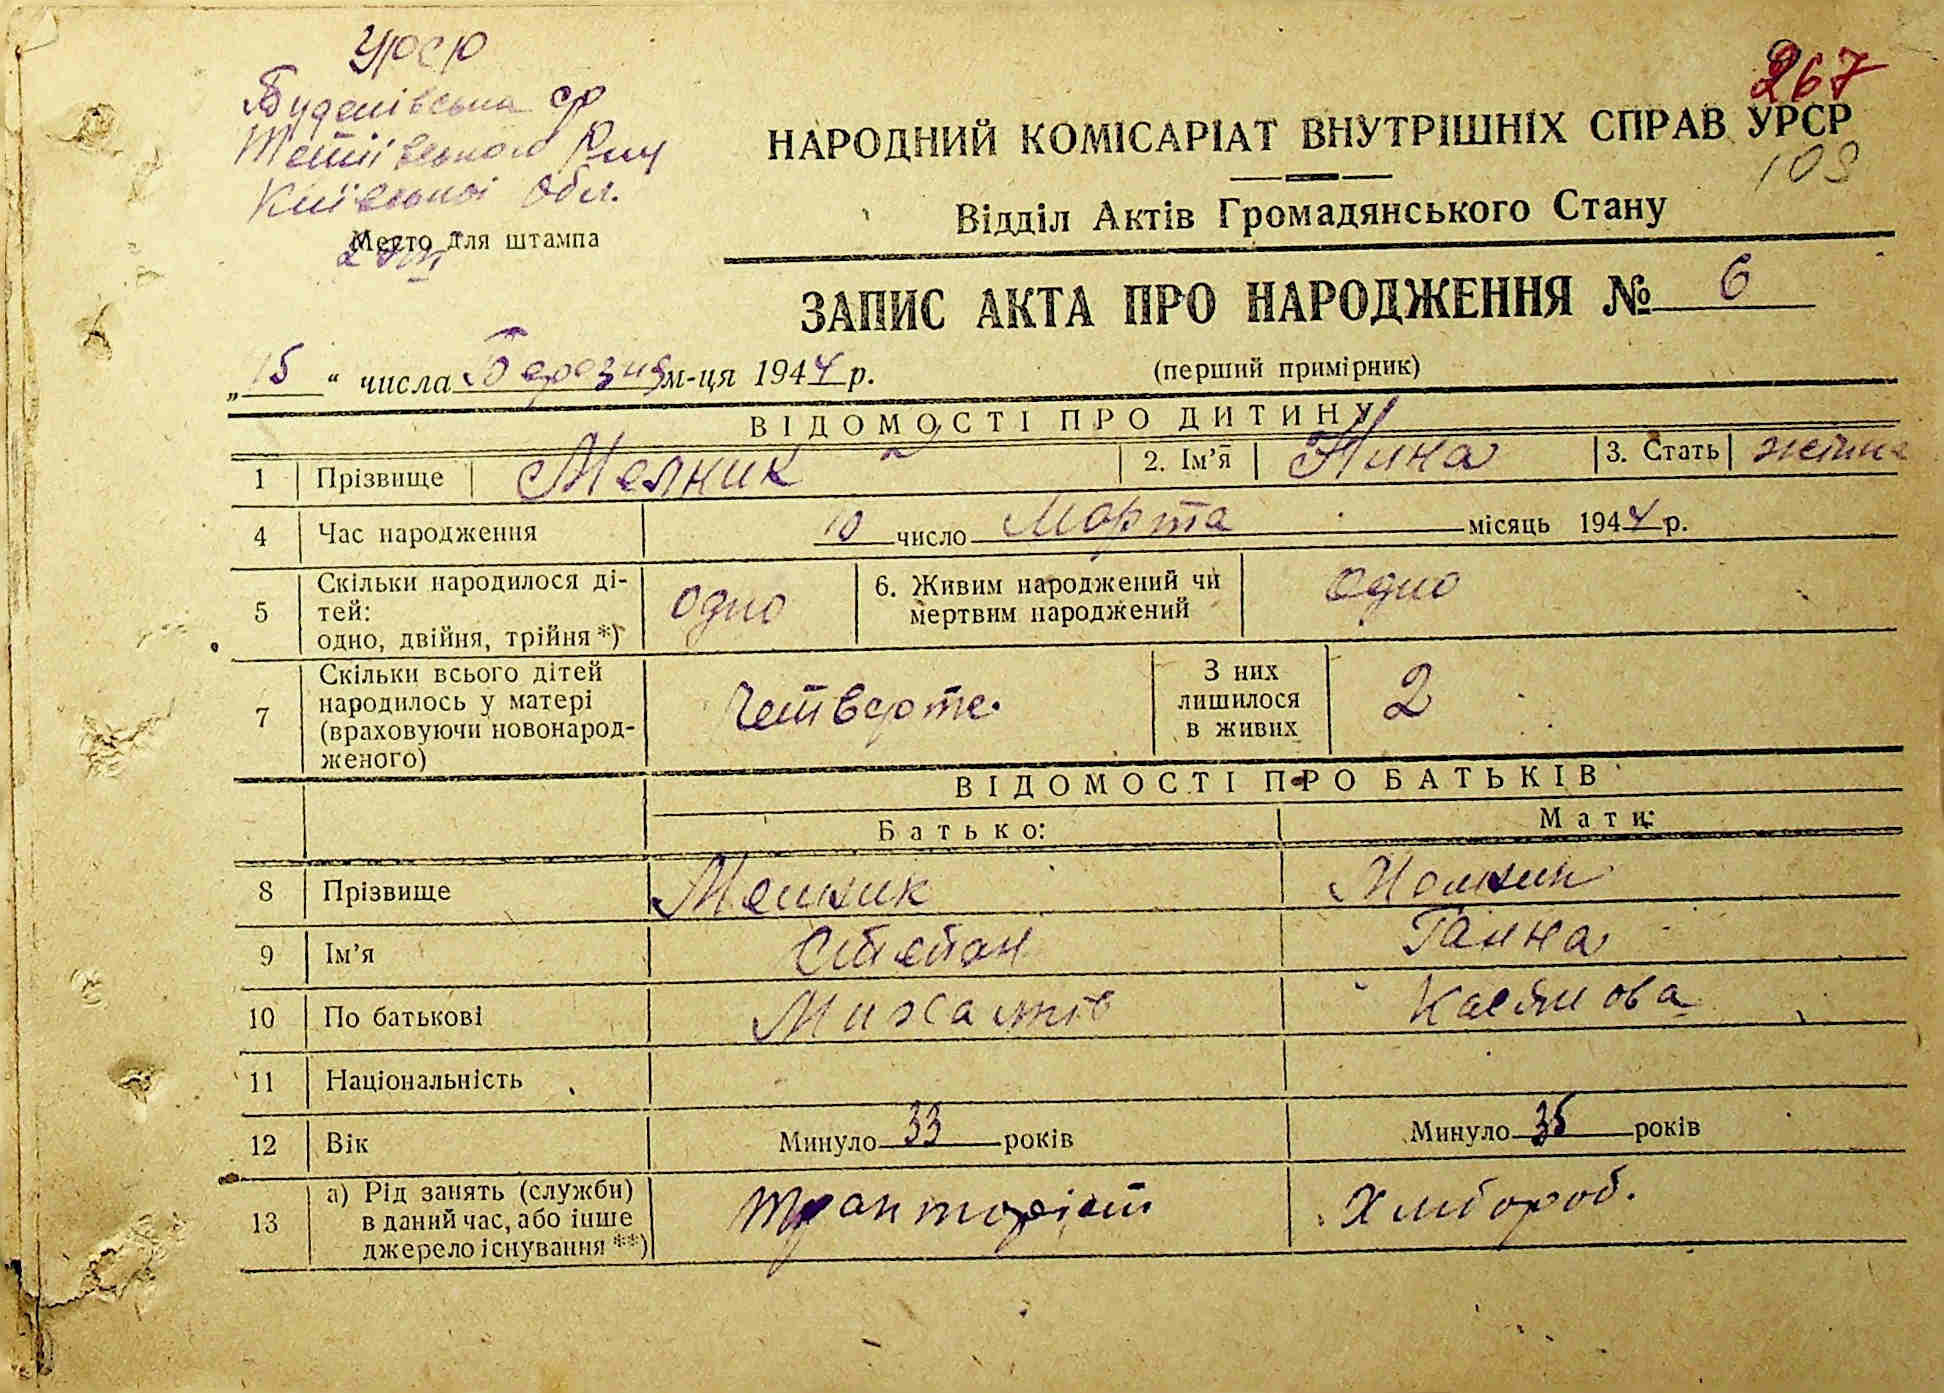 УРСР
267
Буденівська ср
НАРОДНИЙ КОМІСАРІАТ ВНУТРІШНІХ СПРАВ УРСР
Тетіївського
109
Київської Обл.
Відділ Актів Громадянського Стану
Место для штампа
ЗАПИС АКТА ПРО НАРОДЖЕННЯ № 6
„15“ числа Березня м-ця 1944 р.
(перший примірник)
ВІДОМОСТІ ПРО ДИТИНУ
1 Прізвище Мелник 2. Ім’я Нина 3. Стать
4 Час народження 10 число Марта місяць 1944 р.
5 Скільки народилося ді-
тей:
одно, двійня, трійня *) одно 6. Живим народжений чи
мертвим народжений одно
7 Скільки всього дітей
народилось у матері
(враховуючи новонарод-
женого) Четверте. З них
лишилося
в живих 2
ВІДОМОСТІ ПРО БАТЬКІВ
Батько: Мати:
8 Прізвище Мельник Мельник
9 Ім’я Степан Ганна
10 По батькові Касянова
11 Національність
12 Вік Минуло 33 років Минуло 35 років
13 а) Рід занять (служби)
в даний час, або інше
джерело існування **) Тракторіст Хлібороб.